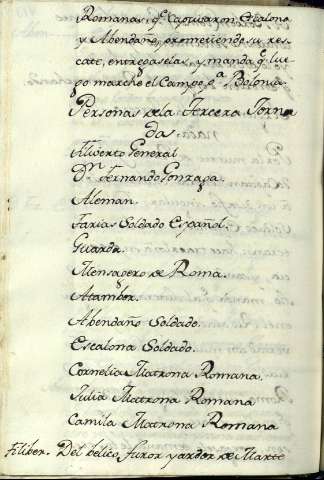 Romanas, q.e captivaron Escalona
y Abendaño, prometiendo su res-
cate, entregaselas, y manda q.e lue-
go marche el Campo p.a Bolonia.
Personas de la Tercera Jorna
das.
Filiverto General
D.n Fernando Gonzaga
Aleman.
Farias Soldado Español.
Guarda.
Mensagero de Roma.
Atambor.
Abendaño Soldado.
Escalona Soldado.
Cornelia Matrona Romana.
Julia Matrona Romana
Camila Matrona Romana
Filiber. Del bélico furor y ardor de Marte